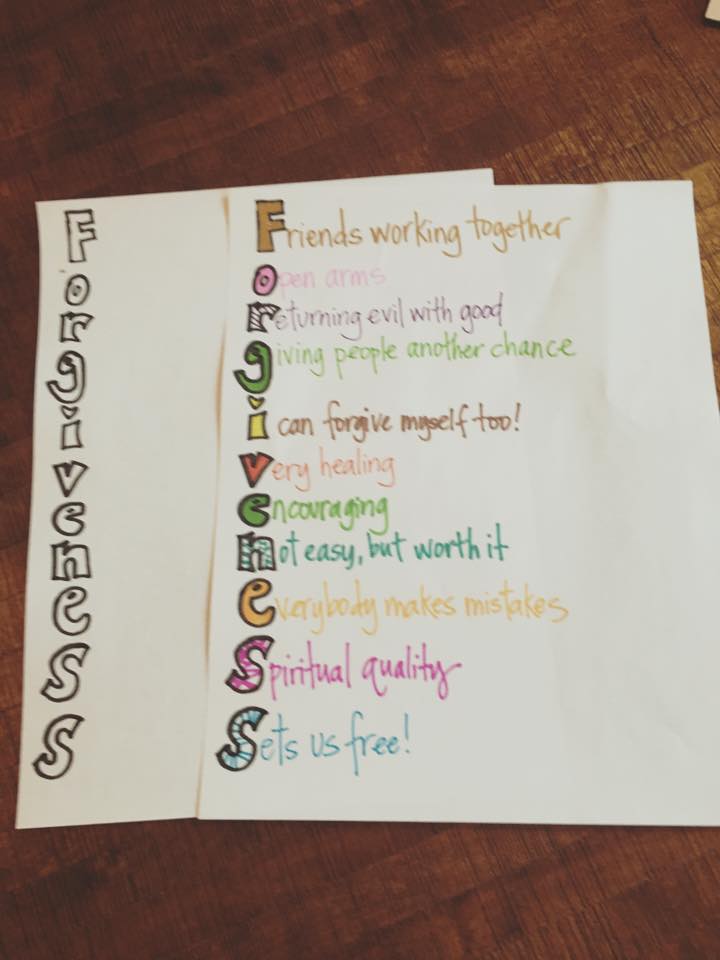 F
o
r
g
i
v
e
n
e
s
s
Friends working together
open arms
returning evil with good
giving people another chance
i can forgive myself too!
very healing
encouraging
not easy, but worth it
everybody makes mistakes
Spiritual quality
Sets us free!